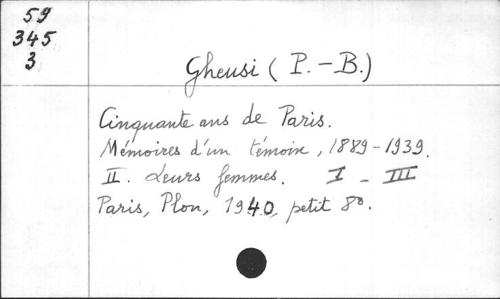 59
345
3
Gheusi (P.-B.)
Cinquante ans de Paris.
Mémoires d'un témoin, 1889-1939.
II. Leurs femmes. I - III
Paris, Plon, 1940, petit 8º.